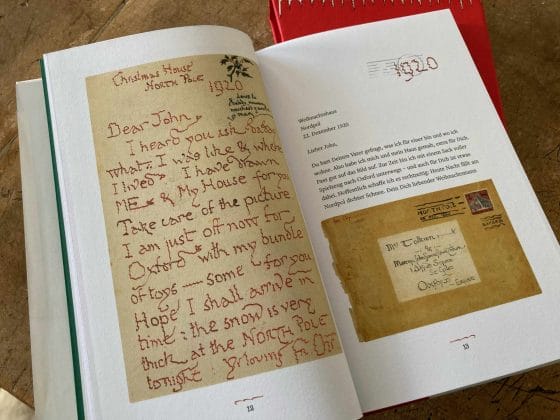 Christmas House
NORTH POLE
1920
Love to
Dear John
I heard you ask daddy
what I was like & where
I lived I have drawn
ME & My House for you
Take care of the picture
I am just off now for
Oxford with my bundle
of toys — some for you
Hope I shall arrive in
time : the snow is very
thick at the NORTH POLE
tonight Yr loving Fr. Chr
12
1920
Weihnachtshaus
Nordpol
22. Dezember 1920
Lieber John,
Du hast Deinen Vater gefragt, wie ich für einer bin und wo ich
wohne. Also habe ich mich und mein Haus gemalt, extra für Dich.
Pass gut auf das Bild auf. Zur Zeit bin ich mit einem Sack voller
Spielzeug nach Oxford unterwegs – und auch für Dich ist etwas
dabei. Hoffentlich schaffe ich es rechtzeitig: Heute Nacht fällt am
Nordpol dichter Schnee. Dein Dich liebender Weihnachtsmann
NORTH POLE
Mrs Tolkien
&
Master John Francis Reuel Tolkien
1 Alfred Street
St Giles
Oxford
England
13